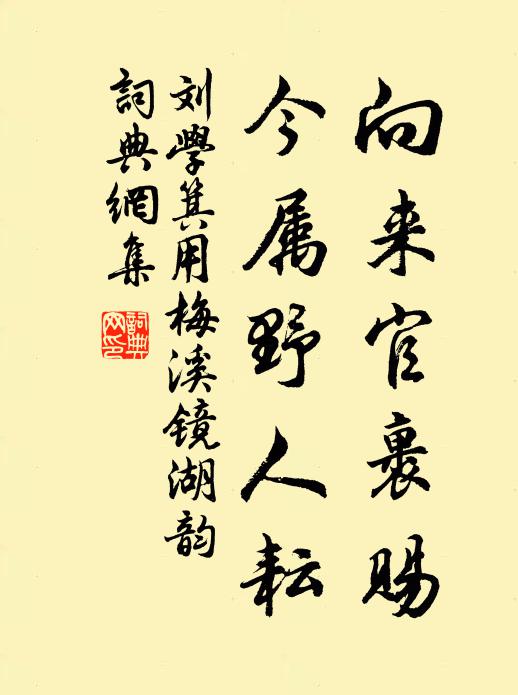 向来官裹赐
今属野人耘
刘學箕用梅溪镜湖韵
詞典網集
詞典
网印